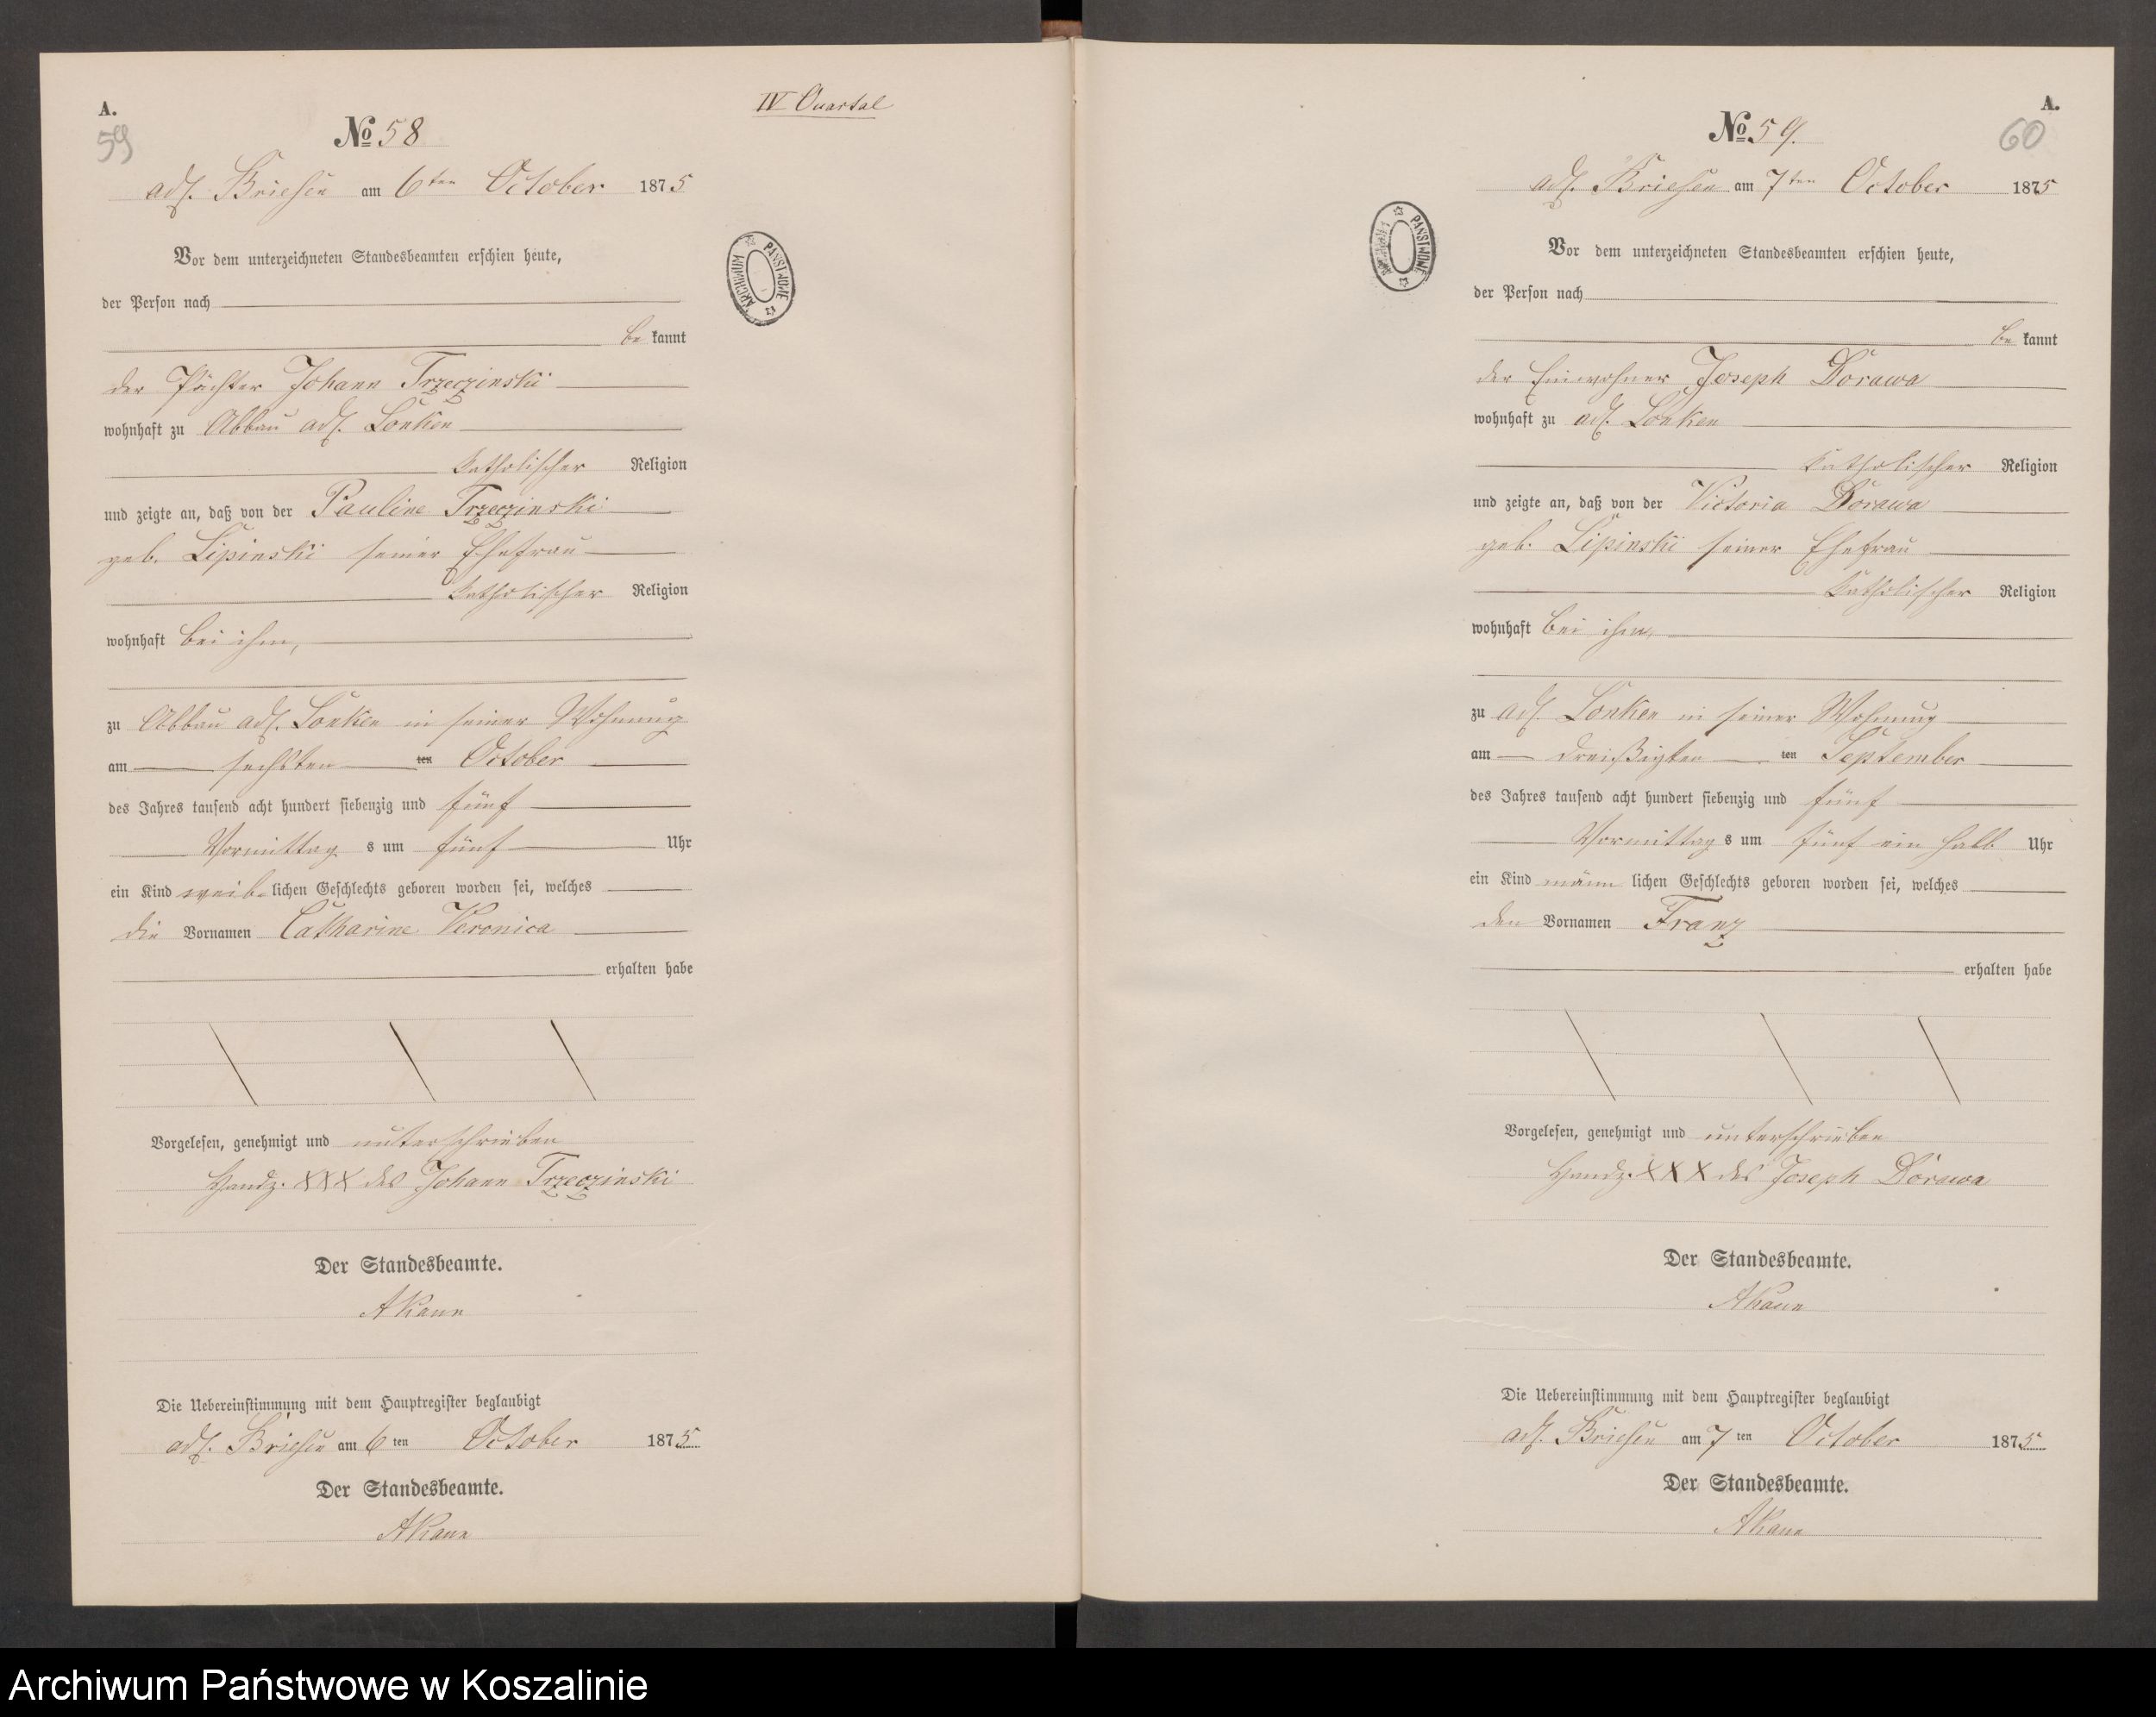 IV Quartal
A.
59
№ 58
adl. Briesen am 6ten October 1875
Vor dem unterzeichneten Standesbeamten erschien heute,
der Person nach
be kannt
der Pächter Johann Trzeczinski
wohnhaft zu Abbau adl. Lonken
katholischer Religion
und zeigte an, daß von der Pauline Trzeczinski
geb. Lipinski seiner Ehefrau
katholischer Religion
wohnhaft bei ihm,
zu Abbau adl. Lonken in seiner Wohnung
am sechsten ten October
des Jahres tausend acht hundert siebenzig und fünf
Vormittag s um fünf Uhr
ein Kind weib lichen Geschlechts geboren worden sei, welches
die Vornamen Catharine Veronica
erhalten habe
Vorgelesen, genehmigt und unterschrieben
Handz. XXX des Johann Trzeczinski
Der Standesbeamte.
AKann
Die Uebereinstimmung mit dem Hauptregister beglaubigt
adl. Briesen am 6 ten October 1875
Der Standesbeamte.
AKann
ARCHIWUM PAŃSTWOWE
A.
60
№ 59.
adl. Briesen am 7ten October 1875
Vor dem unterzeichneten Standesbeamten erschien heute,
der Person nach
be kannt
der Einwohner Joseph Dorawa
wohnhaft zu adl. Lonken
katholischer Religion
und zeigte an, daß von der Victoria Dorawa
geb. Lipinski seiner Ehefrau
katholischer Religion
wohnhaft bei ihm,
zu adl. Lonken in seiner Wohnung
am dreißigten ten September
des Jahres tausend acht hundert siebenzig und fünf
Vormittag s um fünf ein halb Uhr
ein Kind männ lichen Geschlechts geboren worden sei, welches
den Vornamen Franz
erhalten habe
Vorgelesen, genehmigt und unterschrieben
Handz. XXX des Joseph Dorawa
Der Standesbeamte.
AKann
Die Uebereinstimmung mit dem Hauptregister beglaubigt
adl. Briesen am 7 ten October 1875
Der Standesbeamte.
AKann
ARCHIWUM PAŃSTWOWE
Archiwum Państwowe w Koszalinie